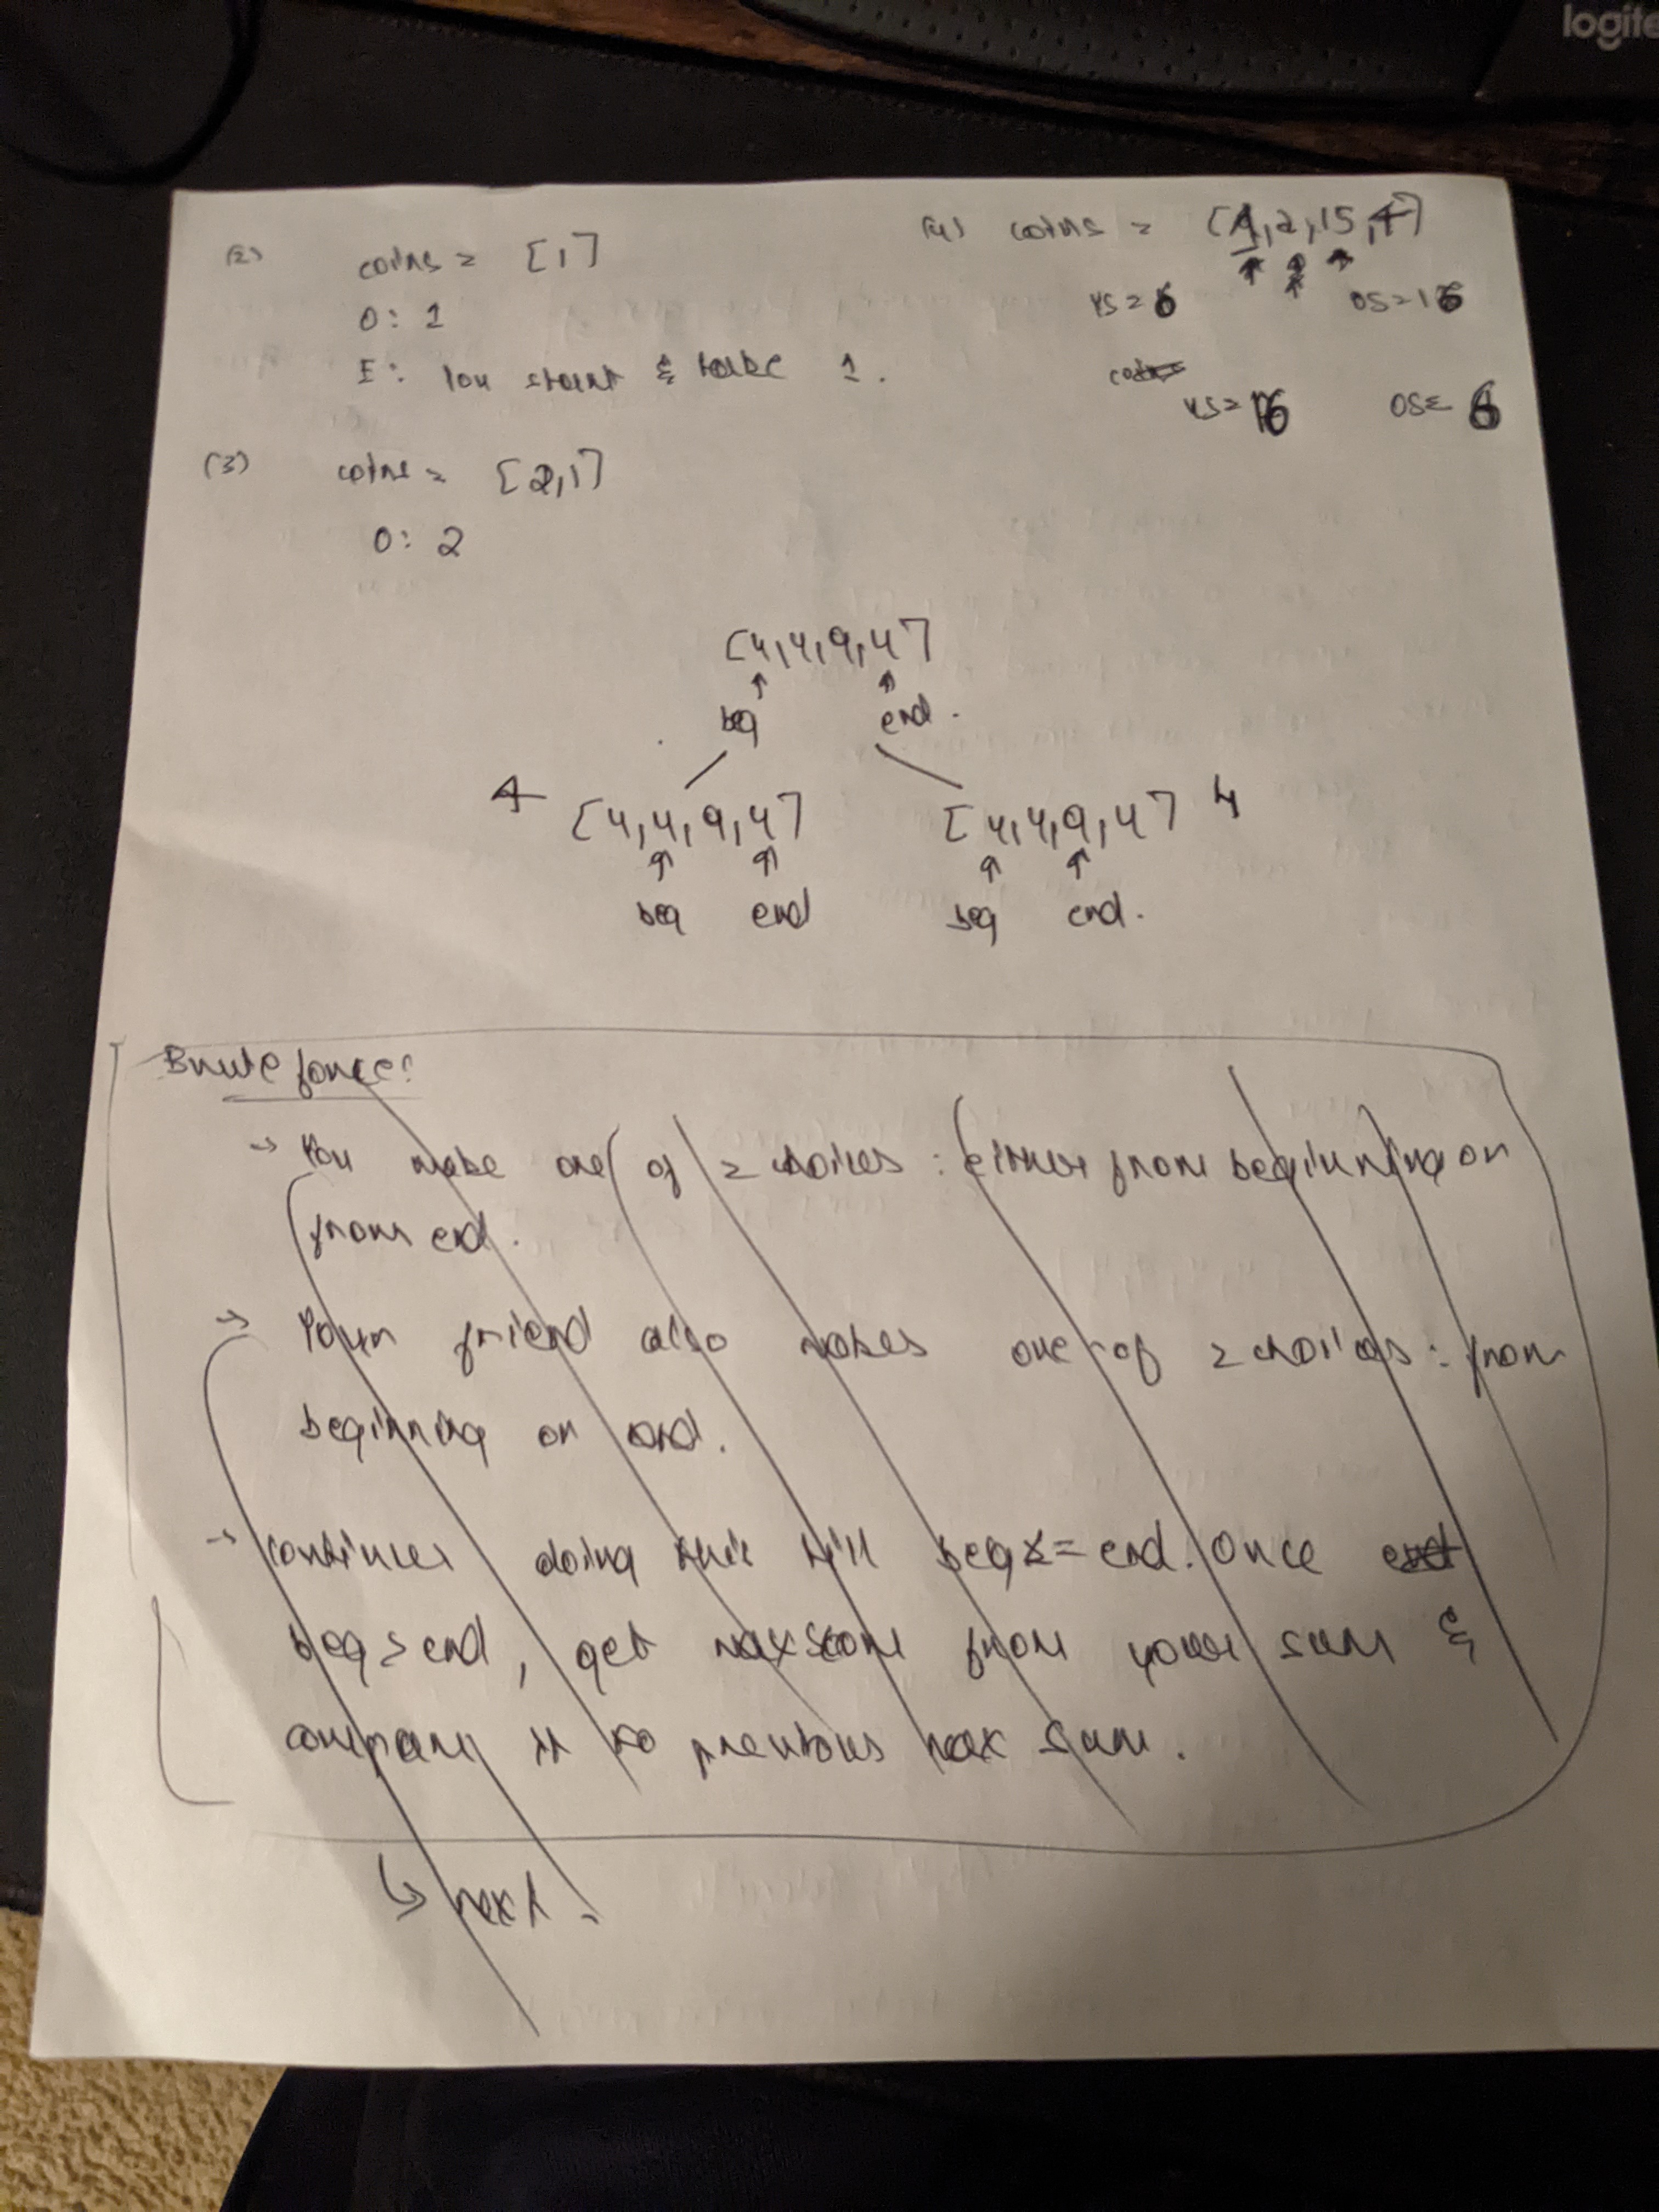 logite
(2) coins = [1]
O: 1
E: You start & take 1.
(4) coins = [1,2,15,4]
YS = 6 OS = 16
coins
YS = 16 OS = 6
(3) coins = [2,1]
O: 2
[4,4,9,4]
beg end.
4 [4,4,9,4] [4,4,9,4] 4
beg end beg end.
Brute force:
→ You make one of 2 choices : either from beginning or
from end.
→ Your friend also makes one of 2 choices : from
beginning or end.
→ continue doing this till beg <= end. Once end
beg > end, get max score from your sum &
compare it to previous max sum.
↳ next.